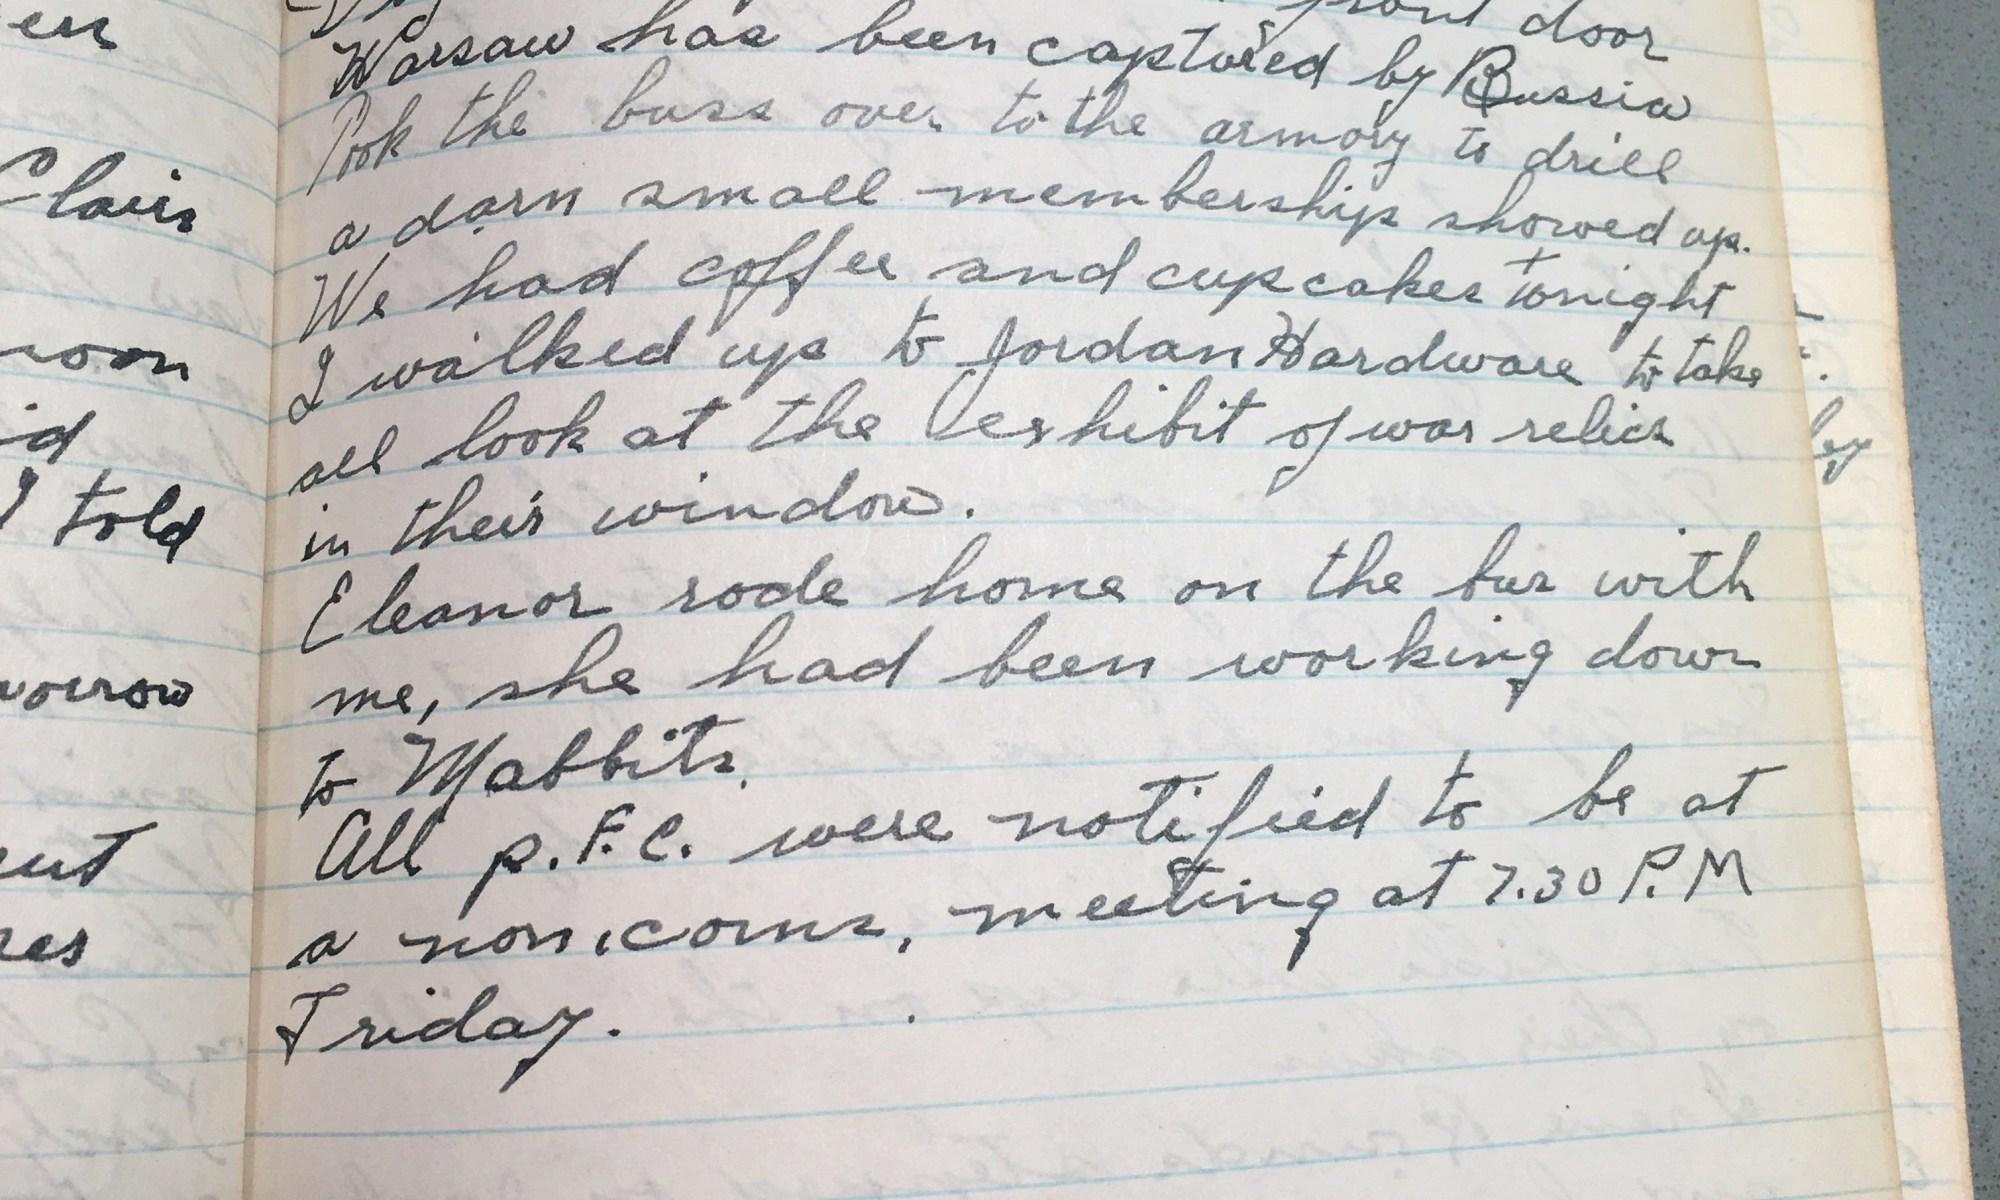 en
Clair
noon
id
I told
morrow
ent
res
front door
Warsaw has been captured by Russia
Took the buss over to the armory to drill
a darn small membership showed up.
We had coffee and cupcakes tonight
I walked up to Jordan Hardware to take
all look at the exhibit of war relics
in their window.
Eleanor rode home on the bus with
me, she had been working down
to Mabbits.
All p.F.C. were notified to be at
a non.coms, meeting at 7.30 P.M
Friday.
by